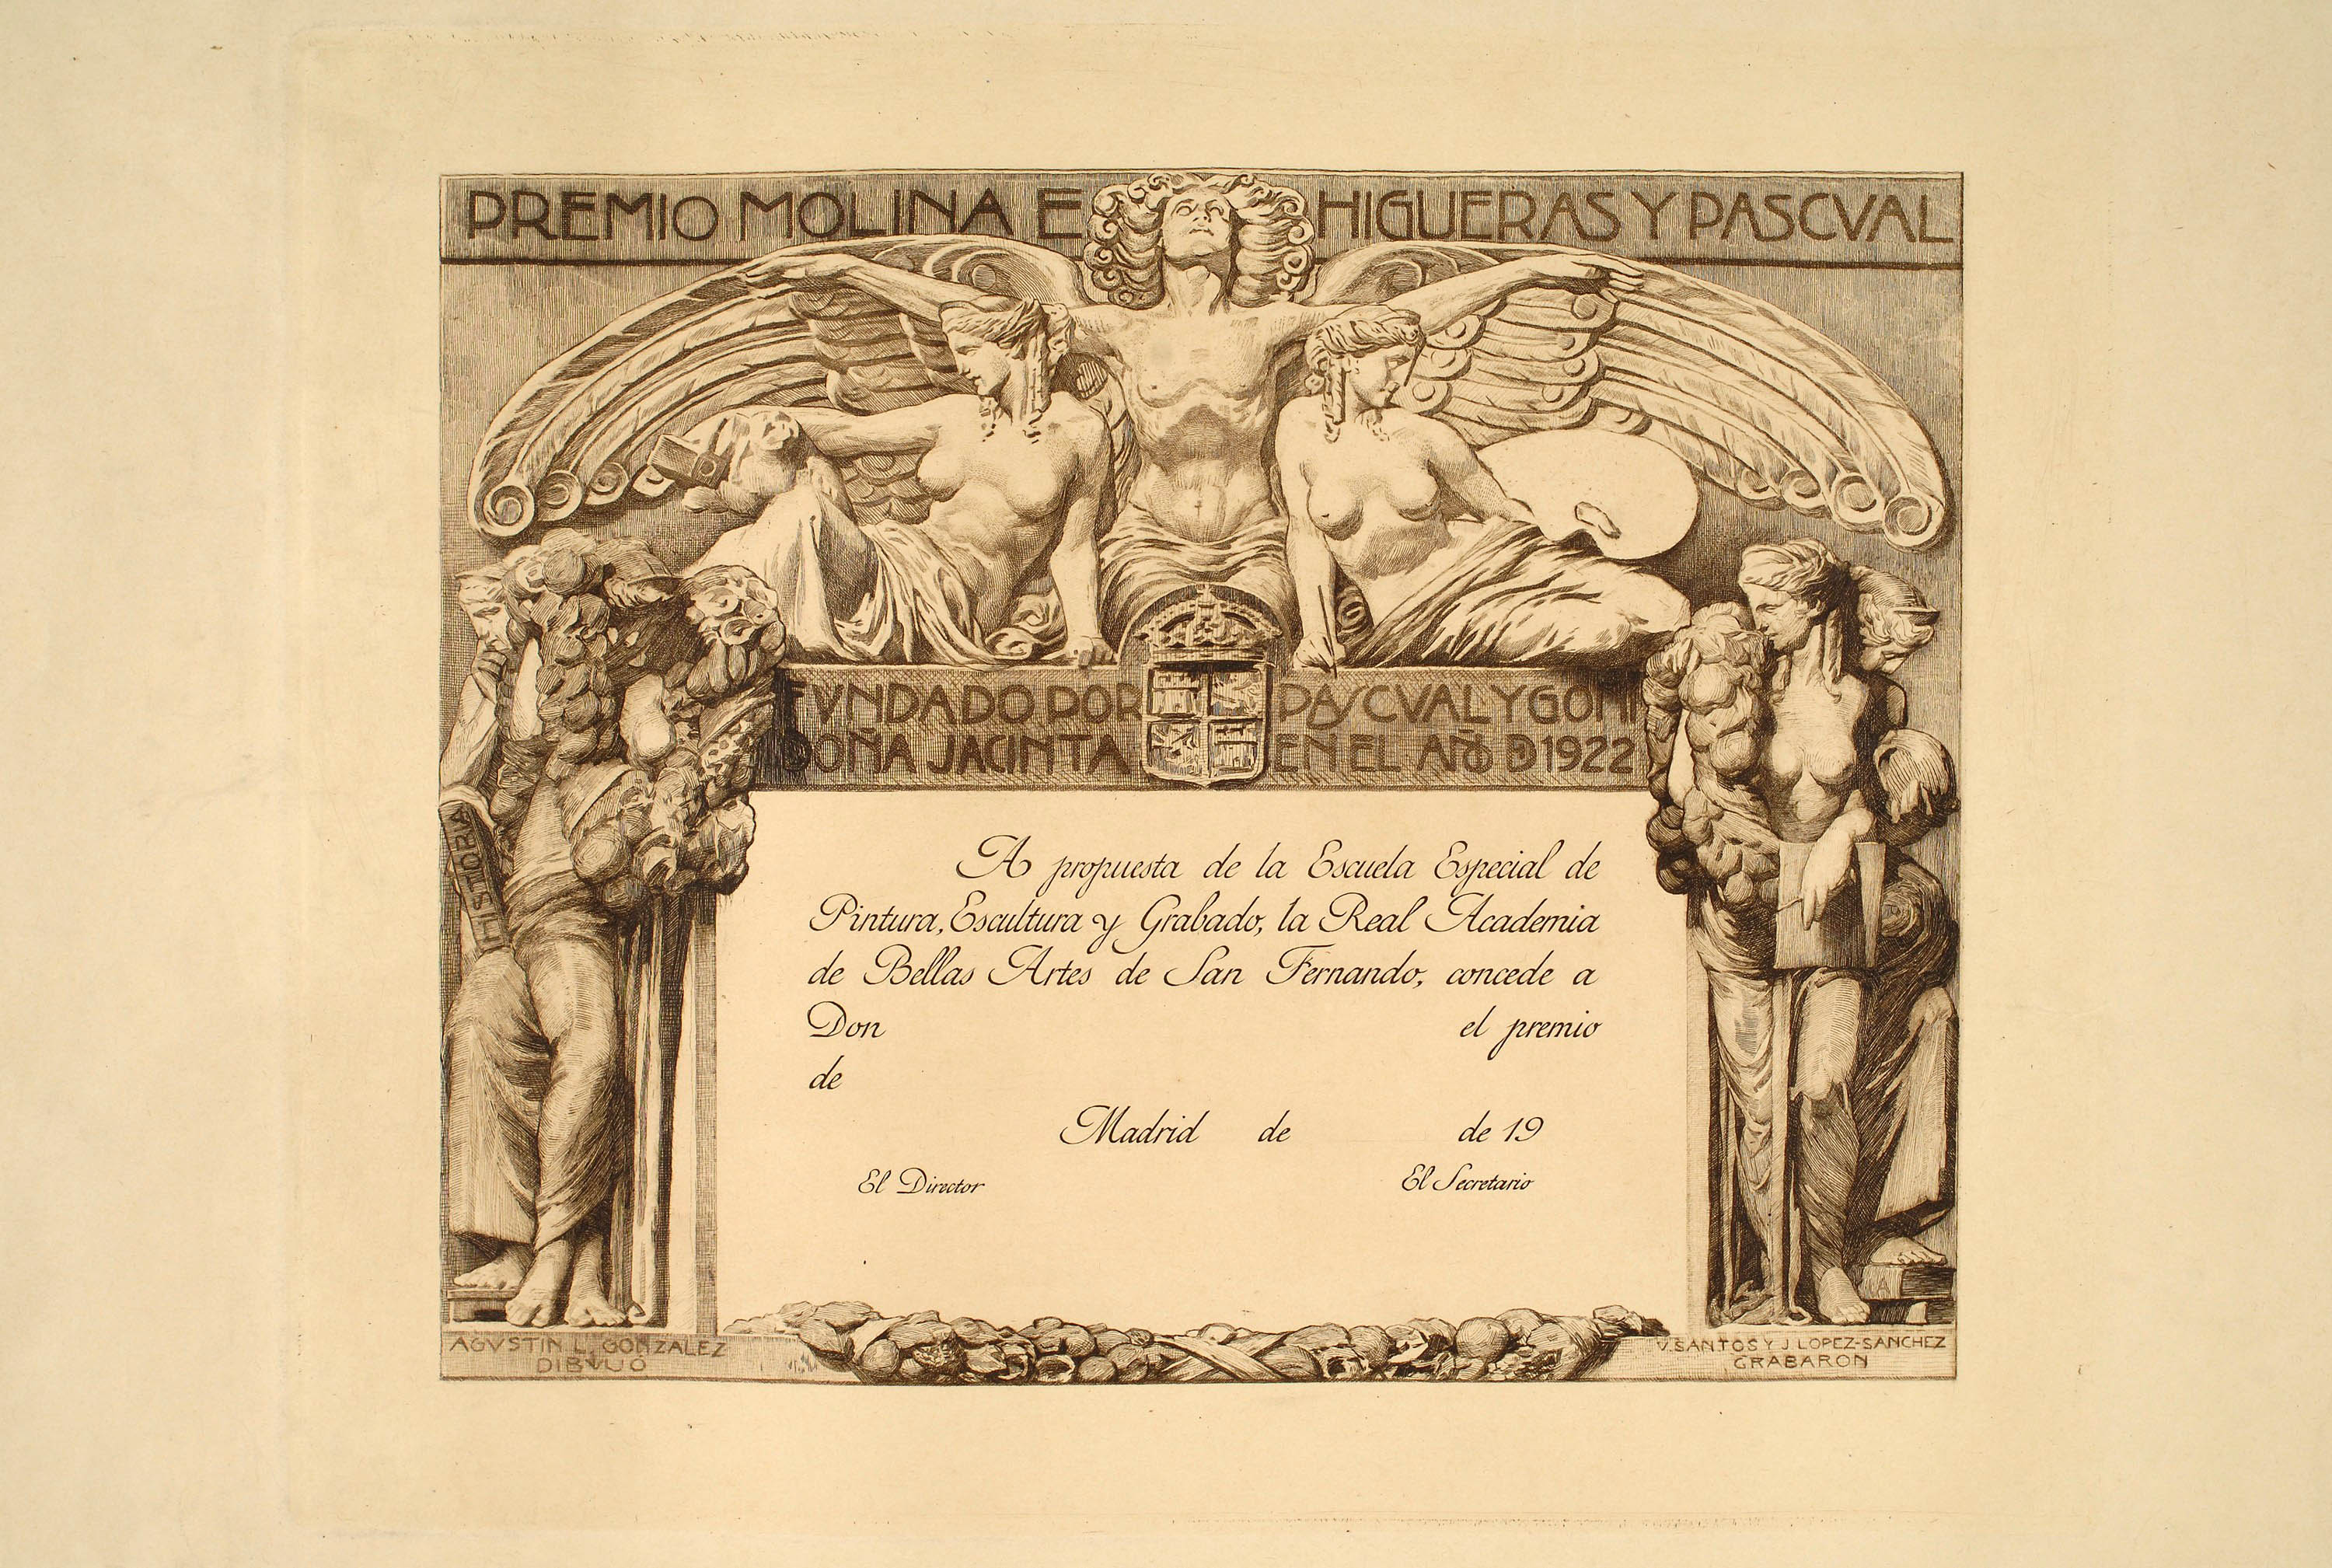 PREMIO MOLINA E HIGUERAS Y PASCVAL
FVNDADO POR PASCVAL Y GOÑI
DOÑA JACINTA EN EL AÑO D 1922
HISTORIA
A propuesta de la Escuela Especial de
Pintura, Escultura y Grabado, la Real Academia
de Bellas Artes de San Fernando, concede a
Don el premio
de
Madrid de de 19
El Director El Secretario
AGVSTIN L. GONZALEZ
DIBVJÓ
V. SANTOS Y J LOPEZ-SANCHEZ
GRABARON